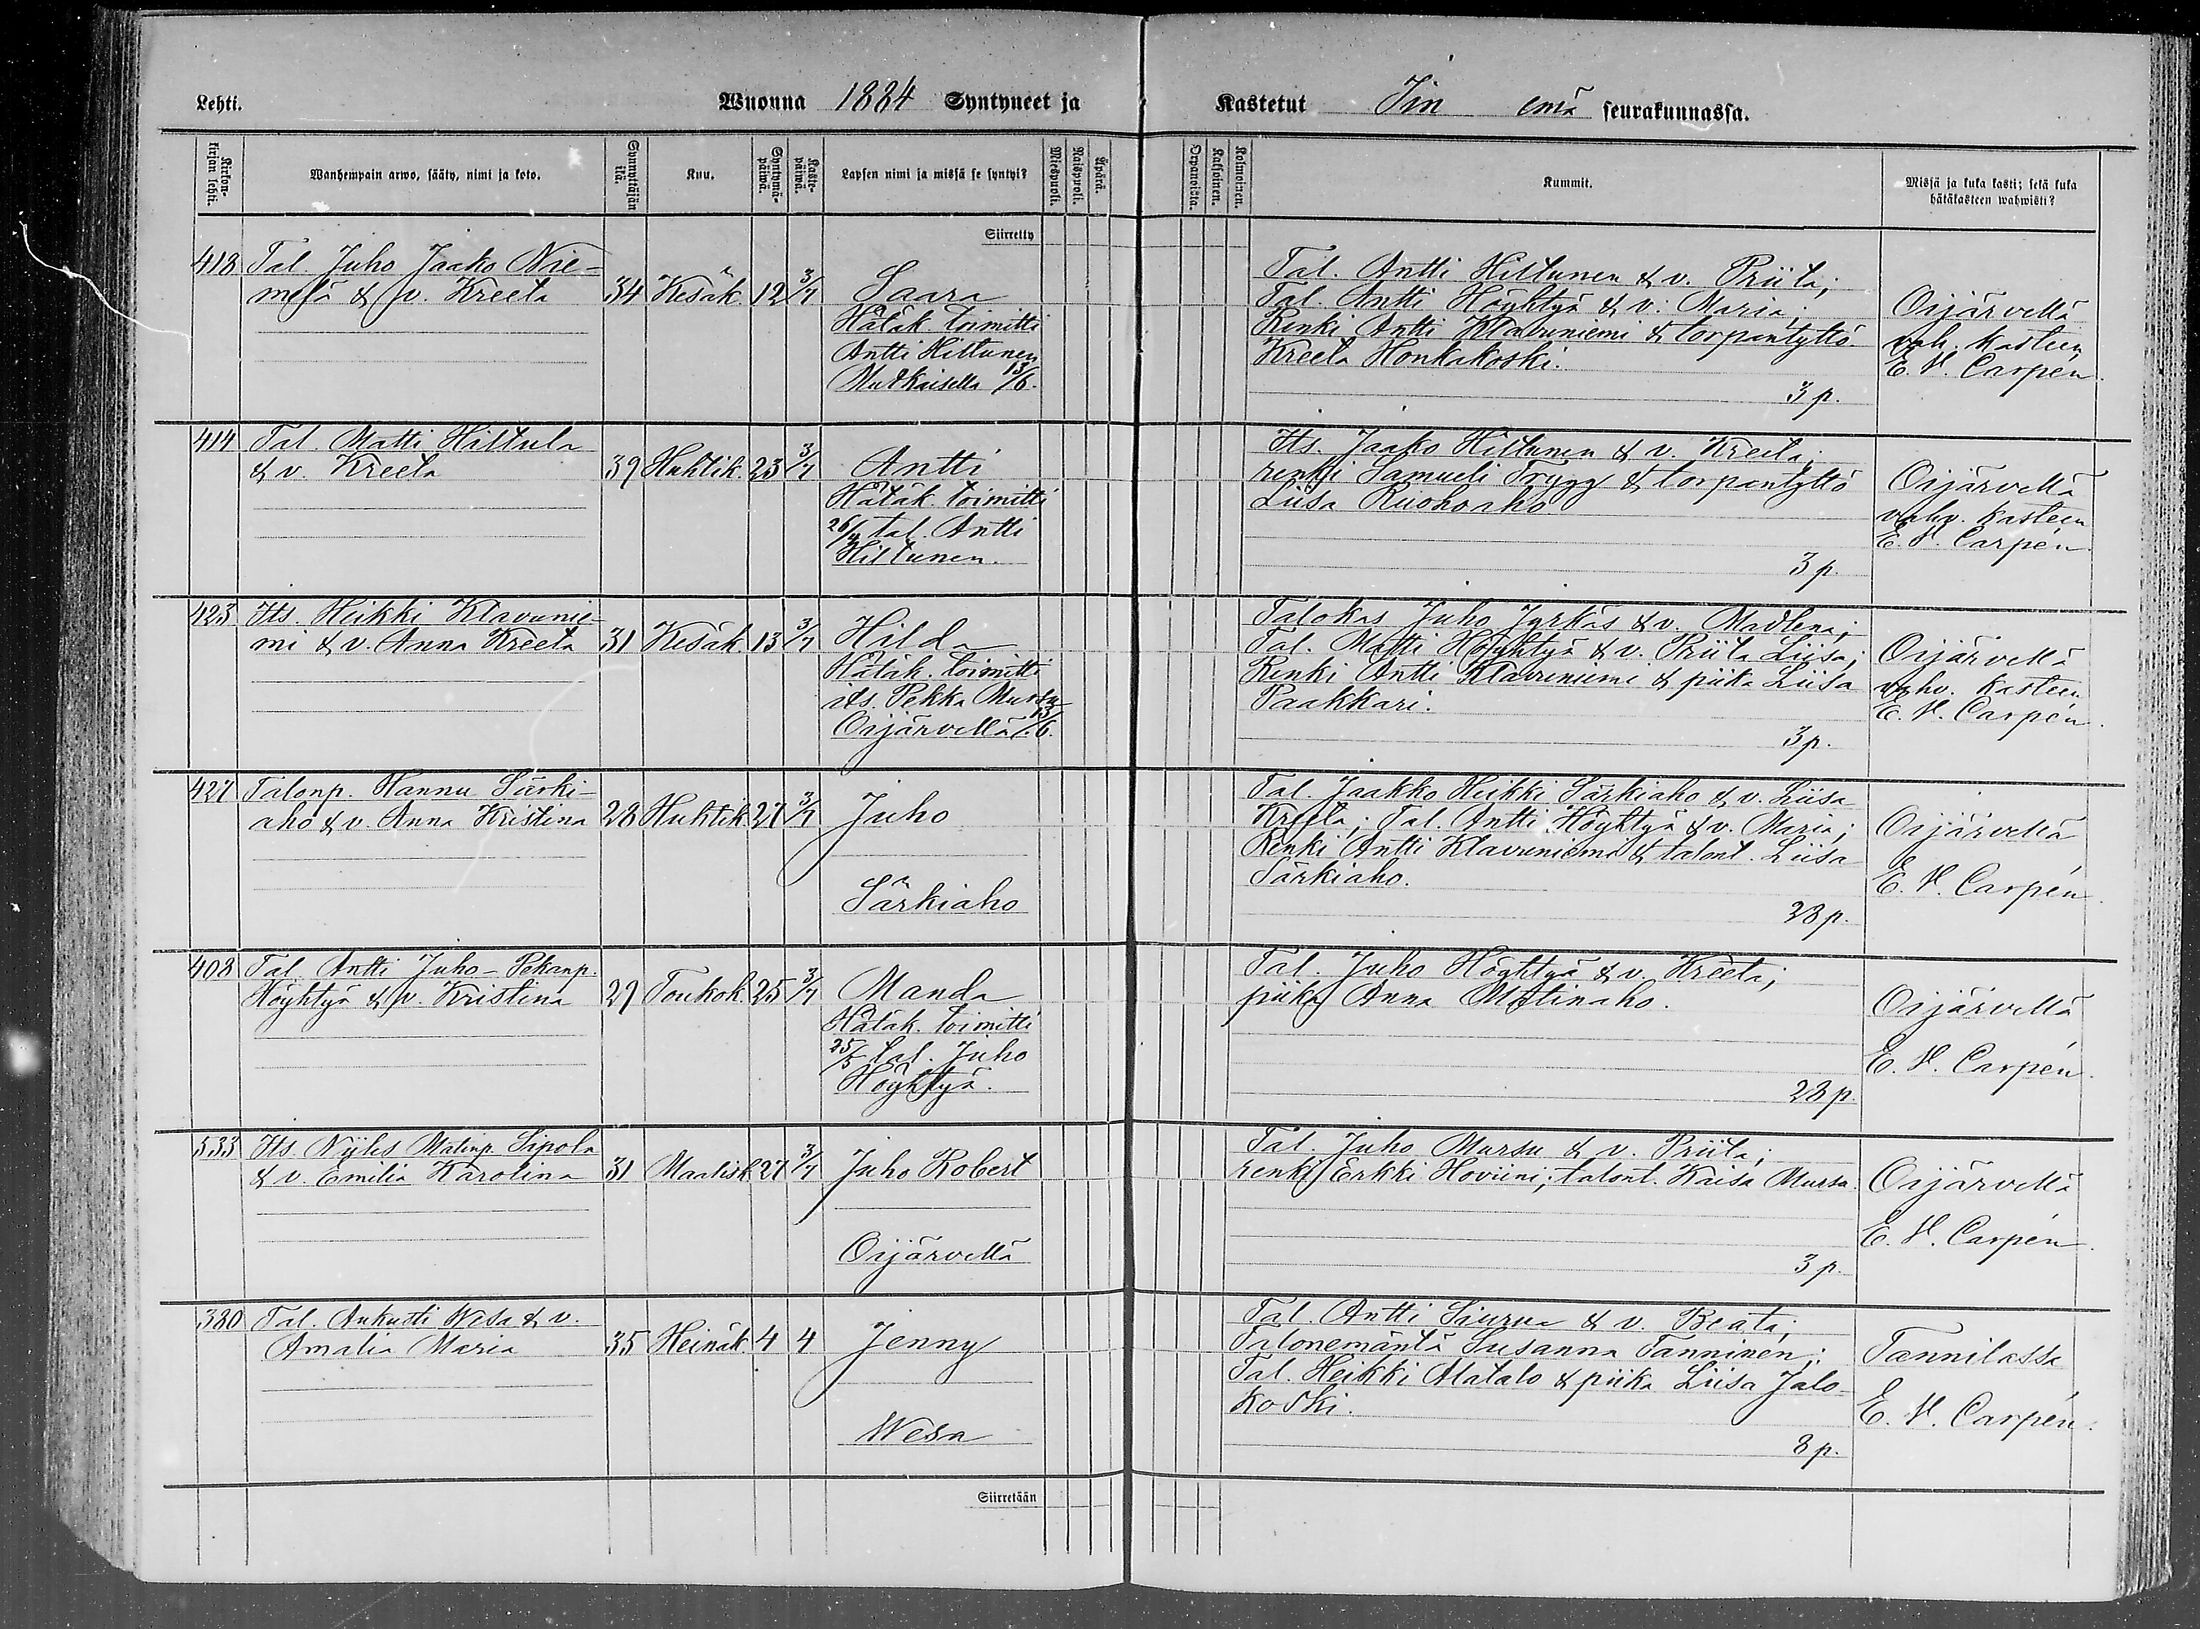 Lehti.
Wuonna 1884 Syntyneet ja
Kastetut Iin emä seurakunnassa.
Kirkonkirjan lehti.
Wanhempain arwo, sääty, nimi ja koto.
Synnyttäjän ikä.
Kuu.
Syntymä-päiwä.
Kaste-päiwä.
Lapsen nimi ja missä se syntyi?
Miespuoli.
Naispuoli.
Äpärä.
Orpanoista.
Kaksoinen.
Kolmoinen.
Kummit.
Missä ja kuka kasti; sekä kuka
hätäkasteen wahwisti?
Siirretty
418 Tal. Juho Jaako Nie-
melä & v. Kreeta 34 Kesäk. 12 3/7 Saara
Hätäk. toimitti
Antti Hiltunen
Mutkaisella 13/6.
Tal. Antti Hiltunen & v. Priita;
Tal. Antti Höyhtyä & v. Maria;
Renki Antti Klavuniemi & torpantyttö
Kreeta Honkakoski.
3 p.
Oijärvellä
vah. kasteen
E. V. Carpén.
414 Tal. Matti Hiltula
& v. Kreeta 39 Huhtik. 23 3/7 Antti
Hätäk. toimitti
26/4 tal. Antti
Hiltunen.
Its. Jaako Hiltunen & v. Kreeta;
renki Samueli Trygg & torpantyttö
Liisa Ruohoaho
3 p.
Oijärvellä
vahv. kasteen
E. V. Carpén.
423 Its. Heikki Klavunie-
mi & v. Anna Kreeta 31 Kesäk. 13 3/7 Hilda
Hätäk. toimitti
its. Pekka Mursu
Oijärvellä 13/6.
Talokas Juho Jyrkäs & v. Madlena;
Tal. Matti Höyhtyä & v. Priita Liisa;
Renki Antti Klavuniemi & piika Liisa
Paakkari.
3 p.
Oijärvellä
vahv. kasteen
E. V. Carpén.
427 Talonp. Hannu Särki-
aho & v. Anna Kristina 28 Huhtik. 27 3/7 Juho
Särkiaho
Tal. Jaakko Heikki Särkiaho & v. Liisa
Kreeta; Tal. Antti Höyhtyä & v. Maria;
Renki Antti Klavuniemi & talont. Liisa
Särkiaho.
28 p.
Oijärvellä
E. V. Carpén.
408 Tal. Antti Juho-Pekanp.
Höyhtyä & v. Kristina 29 Toukok. 25 3/7 Manda
Hätäk. toimitti
25/5 tal. Juho
Höyhtyä.
Tal. Juho Höyhtyä & v. Kreeta;
piika Anna Matinaho.
28 p.
Oijärvellä
E. V. Carpén.
533 Its. Nyiles Matinp. Sipola
& v. Emilia Karolina 31 Maalisk 27 3/7 Juho Robert
Oijärvellä
Tal. Juho Mursu & v. Priita;
renki Erkki Hoviini; talont. Kaisa Mursu.
3 p.
Oijärvellä
E. V. Carpén.
380 Tal. Aukusti Wesa & v.
Amalia Maria 35 Heinäk. 4 4 Jenny
Wesa
Tal. Antti Siurua & v. Beata;
Talonemäntä Susanna Tanninen;
Tal. Heikki Alatalo & piika Liisa Jalo-
koski.
8 p.
Tannilassa
E. V. Carpén.
Siirretään